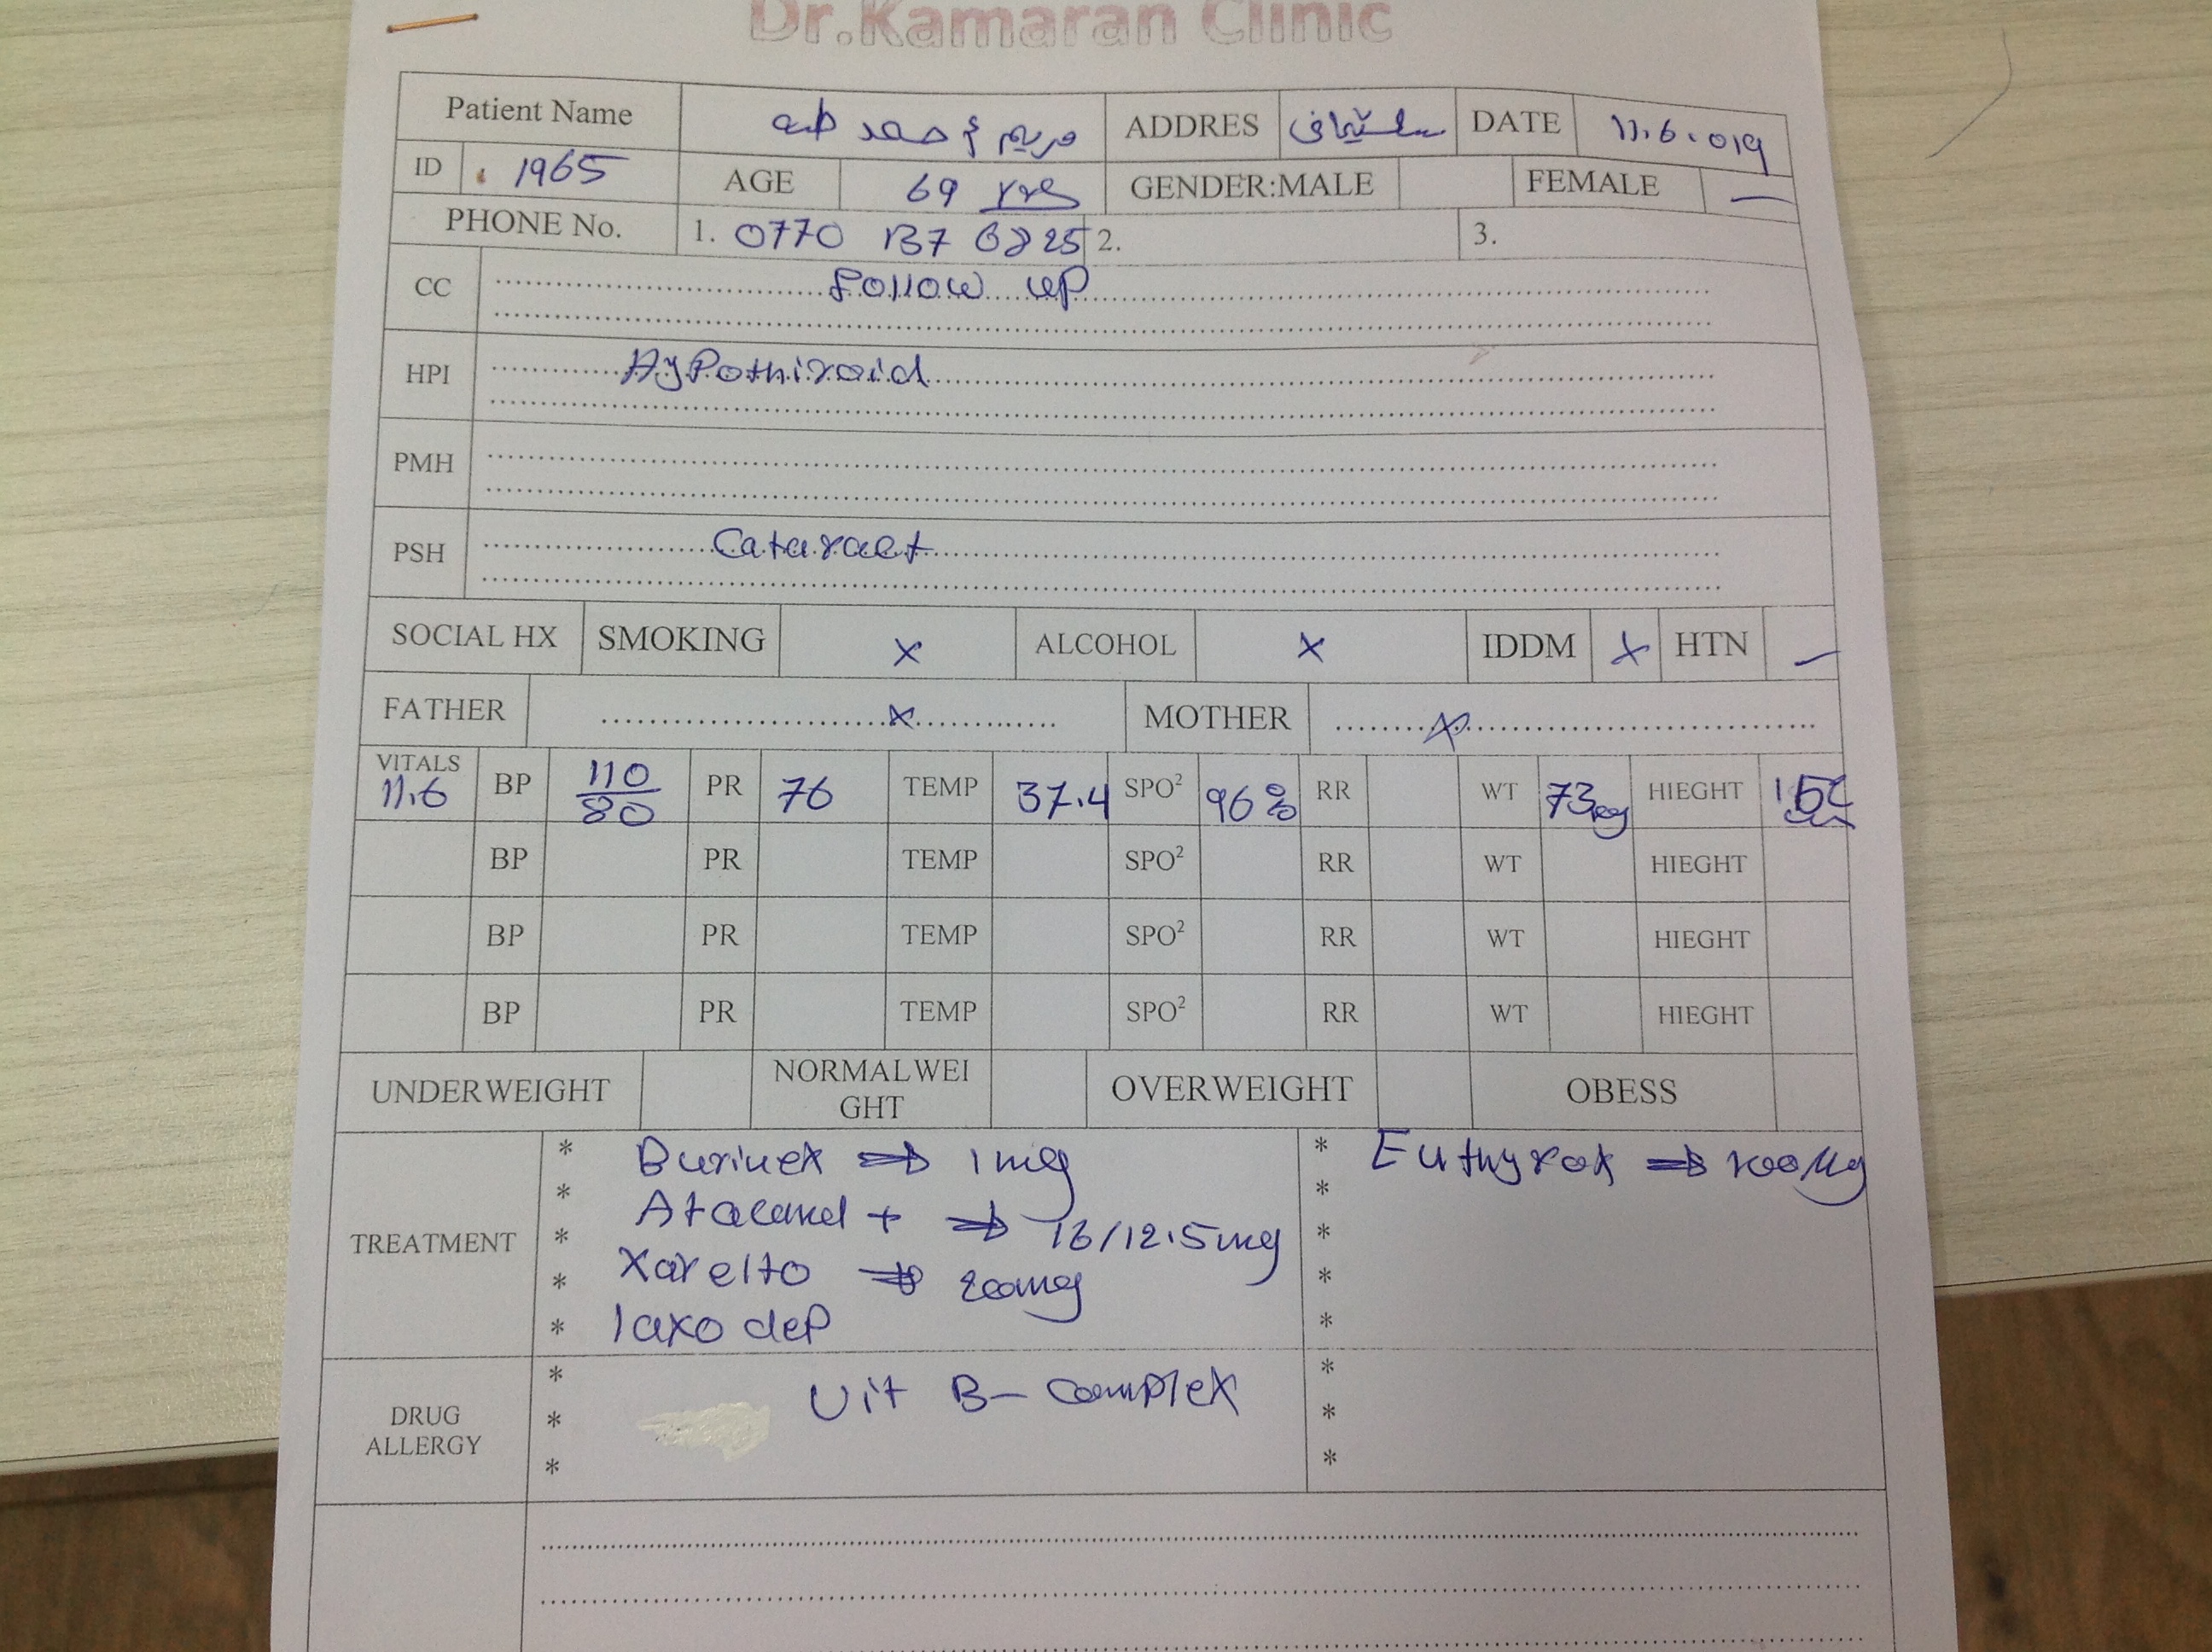 Dr.Kamaran Clinic
Patient Name مريم أحمد طه ADDRES سلێمانی DATE 11.6.019
ID 1965 AGE 69 yrs GENDER:MALE FEMALE —
PHONE No. 1. 0770 137 6825 2. 3.
CC Follow up
HPI Hypothiroid
PMH
PSH Cataract
SOCIAL HX SMOKING x ALCOHOL x IDDM x HTN
FATHER x MOTHER x
VITALS 11.6 BP 110/80 PR 76 TEMP 37.4 SPO² 96% RR WT 73kg HIEGHT
BP PR TEMP SPO² RR WT HIEGHT
BP PR TEMP SPO² RR WT HIEGHT
BP PR TEMP SPO² RR WT HIEGHT
UNDERWEIGHT NORMALWEI
GHT OVERWEIGHT OBESS
TREATMENT
* Burinex ⇒ 1mg
* Atacand + ⇒ 16/12.5mg
* Xarelto ⇒ 20mg
* laxo dep
*
* Euthyrox ⇒ 100Mg
*
*
*
*
DRUG
ALLERGY
* Vit B- complex
*
*
*
*
*